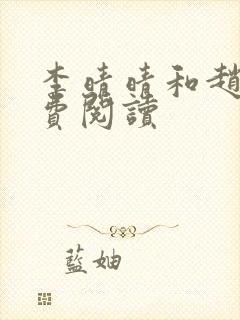 李晴晴和趙
費閱讀
藍妯